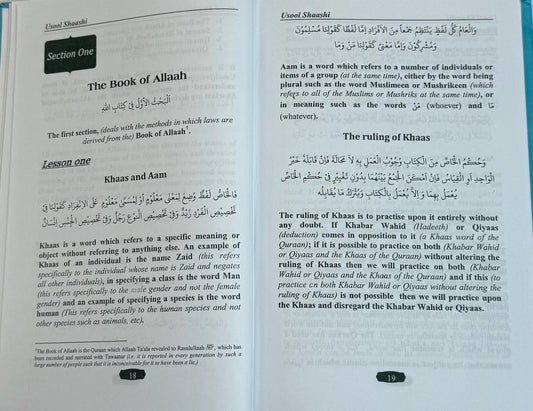 Usool Shaashi
Section One
The Book of Allaah
اَلْبَحْثُ الْاَوَّلُ فِيْ كِتَابِ اللهِ
The first section, (deals with the methods in which laws are
derived from the) Book of Allaah¹.
Lesson one
Khaas and Aam
فَالْخَاصُّ لَفْظٌ وُضِعَ لِمَعْنًى مَعْلُوْمٍ اَوْ لِمُسَمًّى مَعْلُوْمٍ عَلَى الْاِنْفِرَادِ كَقَوْلِنَا فِيْ
تَخْصِيْصِ الْفَرْدِ زَيْدٌ وَفِيْ تَخْصِيْصِ النَّوْعِ رَجُلٌ وَفِيْ تَخْصِيْصِ الْجِنْسِ اِنْسَانٌ
Khaas is a word which refers to a specific meaning or
object without referring to anything else. An example of
Khaas of an individual is the name Zaid (this refers
specifically to the individual whose name is Zaid and negates
all other individuals), in specifying a class is the word Man
(this refers specifically to the male gender and not the female
gender) and an example of specifying a species is the word
human (This refers specifically to the human species and not
other species such as animals, etc).
¹The Book of Allaah is the Quraan which Allaah Ta'ala revealed to Rasulullaah ﷺ, which has
been recorded and narrated with Tawaatur (i.e. it is reported in every generation by such a
large number of people such that it is inconceivable for it to have been a lie.)
18
Usool Shaashi
وَالْعَامُ كُلُّ لَفْظٍ يَنْتَظِمُ جَمْعاً مِنَ الْاَفْرَادِ اِمَّا لَفْظًا كَقَوْلِنَا مُسْلِمُوْنَ
وَمُشْرِكُوْنَ وَاِمَّا مَعْنًى كَقَوْلِنَا مَنْ وَمَا
Aam is a word which refers to a number of individuals or
items of a group (at the same time), either by the word being
plural such as the word Muslimeen or Mushrikeen (which
refers to all of the Muslims or Mushriks at the same time), or
in meaning such as the words مَنْ (whoever) and مَا
(whatever).
The ruling of Khaas
وَحُكْمُ الْخَاصِّ مِنَ الْكِتَابِ وُجُوْبُ الْعَمَلِ بِهِ لَا مَحَالَةَ فَاِنْ قَابَلَهُ خَبَرُ
الْوَاحِدِ اَوِ الْقِيَاسُ فَاِنْ اَمْكَنَ الْجَمْعُ بَيْنَهُمَا بِدُوْنِ تَغْيِيْرٍ فِيْ حُكْمِ الْخَاصِّ
يُعْمَلُ بِهِمَا وَاِلَّا يُعْمَلُ بِالْكِتَابِ وَيُتْرَكُ مَا يُقَابِلُهُ
The ruling of Khaas is to practise upon it entirely without
any doubt. If Khabar Wahid (Hadeeth) or Qiyaas
(deduction) comes in opposition to it (a Khaas word of the
Quraan); if it is possible to practice on both (Khabar Wahid
or Qiyaas and the Khaas of the Quraan) without altering the
ruling of Khaas then we will practice on both (Khabar
Wahid or Qiyaas and the Khaas of the Quraan) and if this (to
practice on both Khabar Wahid or Qiyaas without altering the
ruling of Khaas) is not possible then we will practice upon
the Khaas and disregard the Khabar Wahid or Qiyaas.
19